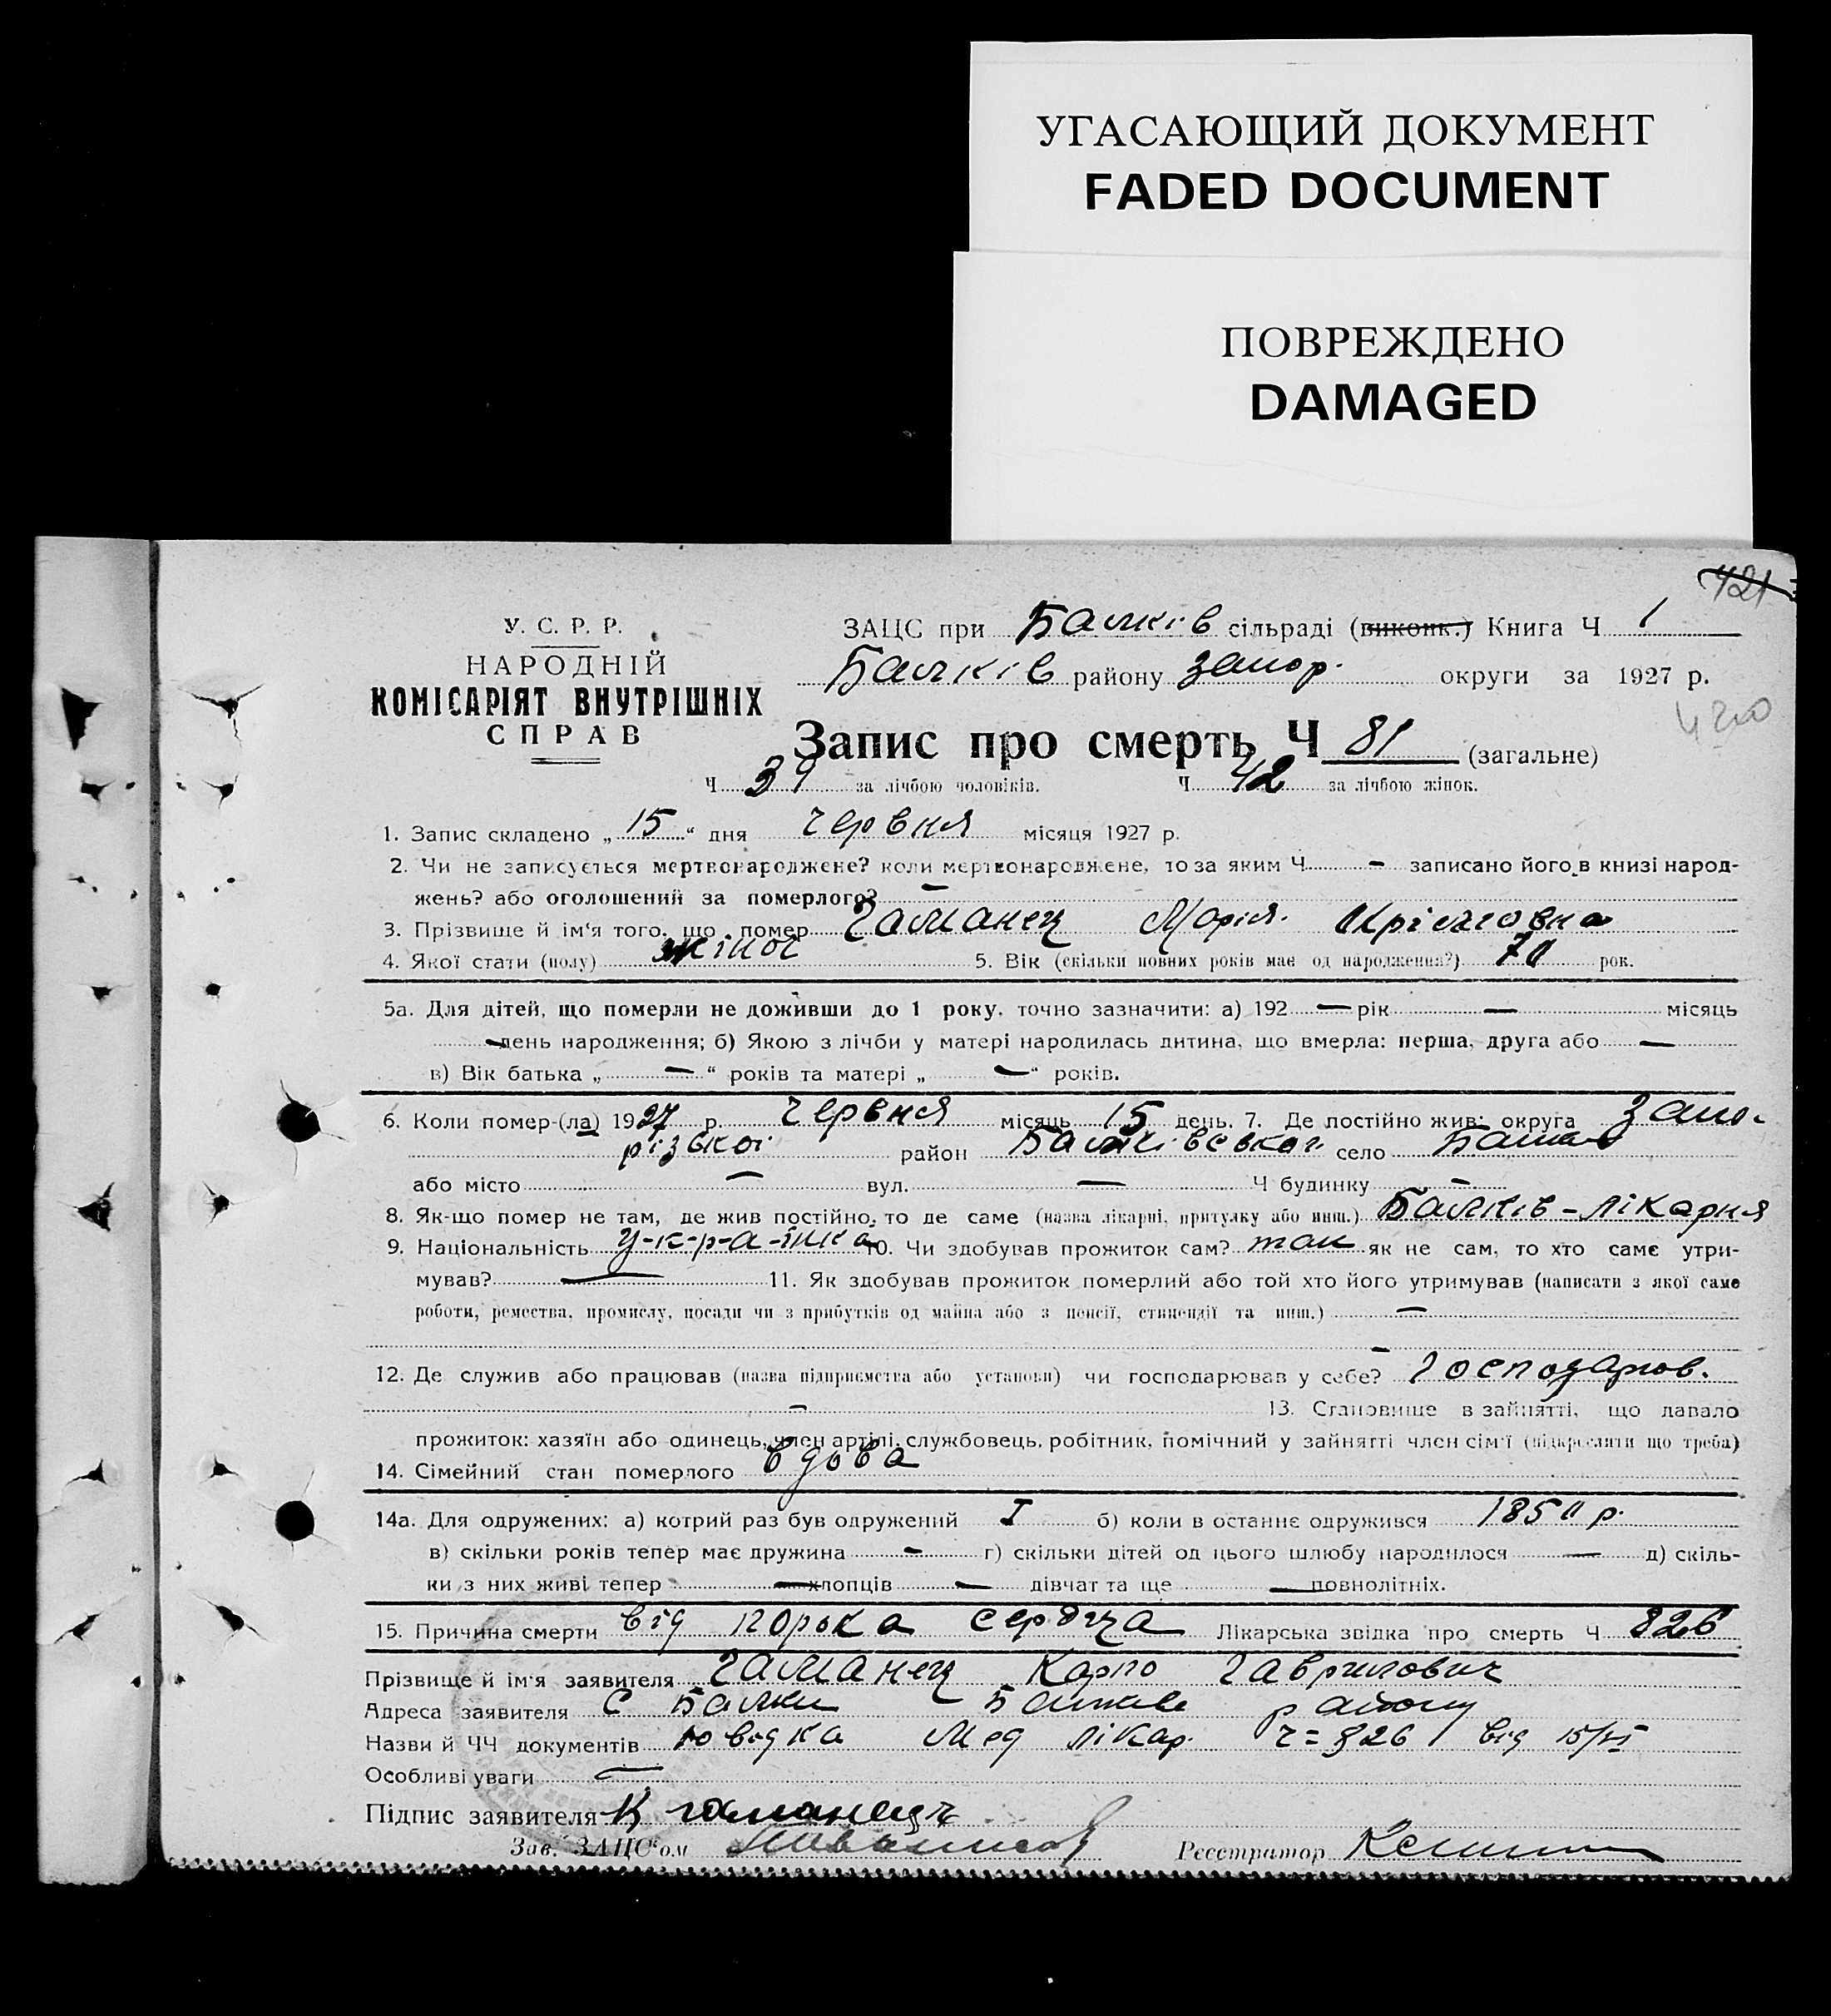 УГАСАЮЩИЙ ДОКУМЕНТ
FADED DOCUMENT
ПОВРЕЖДЕНО
DAMAGED
421
У. С. Р. Р.
НАРОДНІЙ
КОМІСАРІЯТ ВНУТРІШНІХ
СПРАВ
ЗАЦС при Балків сільраді (виконк.) Книга Ч 1
Балків району Запор. округи за 1927 р.
420
Запис про смерть Ч 81 (загальне)
Ч 39 за лічбою чоловіків. Ч 42 за лічбою жінок.
1. Запис складено „ 15 “ дня червня місяця 1927 р.
2. Чи не записується мертвонароджене? коли мертвонароджене, то за яким Ч — записано його в книзі народ-
жень? або оголошений за померлого? —
3. Прізвище й ім'я того, що помер Гаманец Мария
4. Якої стати (полу) жіноч 5. Вік (скільки повних років має од народження?) 70 рок.
5а. Для дітей, що померли не доживши до 1 року, точно зазначити: а) 192 — рік — місяць
— день народження; б) Якою з лічби у матері народилась дитина, що вмерла: перша, друга або —
в) Вік батька „ — “ років та матері „ — “ років.
6. Коли помер-(ла) 1927 р. червня місяць 15 день. 7. Де постійно жив: округа Запо-
різької район Балківської село Балки
або місто — вул. — Ч будинку —
8. Як-що помер не там, де жив постійно, то де саме (назва лікарні, притулку або инш.) Балків-лікарня
9. Національність у-к-р-а-їнка 10. Чи здобував прожиток сам? так як не сам, то хто саме утри-
мував? — 11. Як здобував прожиток померлий або той хто його утримував (написати з якої саме
роботи, ремества, промислу, посади чи з прибутків од майна або з пенсії, стипендії та инш.) —
—
12. Де служив або працював (назва підприємства або установи) чи господарював у себе? Господарюв.
— 13. Становище в зайнятті, що давало
прожиток: хазяїн або одинець, член артілі, службовець, робітник, помічний у зайнятті член сім'ї (підкреслити що треба)
14. Сімейний стан померлого вдова
14а. Для одружених: а) котрий раз був одружений I б) коли в останнє одружився р.
в) скільки років тепер має дружина — г) скільки дітей од цього шлюбу народилося — д) скіль-
ки з них живі тепер — хлопців — дівчат та ще — повнолітніх.
15. Причина смерти від порока сердца Лікарська звідка про смерть Ч 826
Прізвище й ім'я заявителя Гаманец Карпо Гаврилович
Адреса заявителя С Балки Балків району
Назви й ЧЧ документів довідка Мед лікар. ч=826 від 15/VI
Особливі уваги —
Підпис заявителя К гаманець
Зав. ЗАЦС'ом
Реєстратор